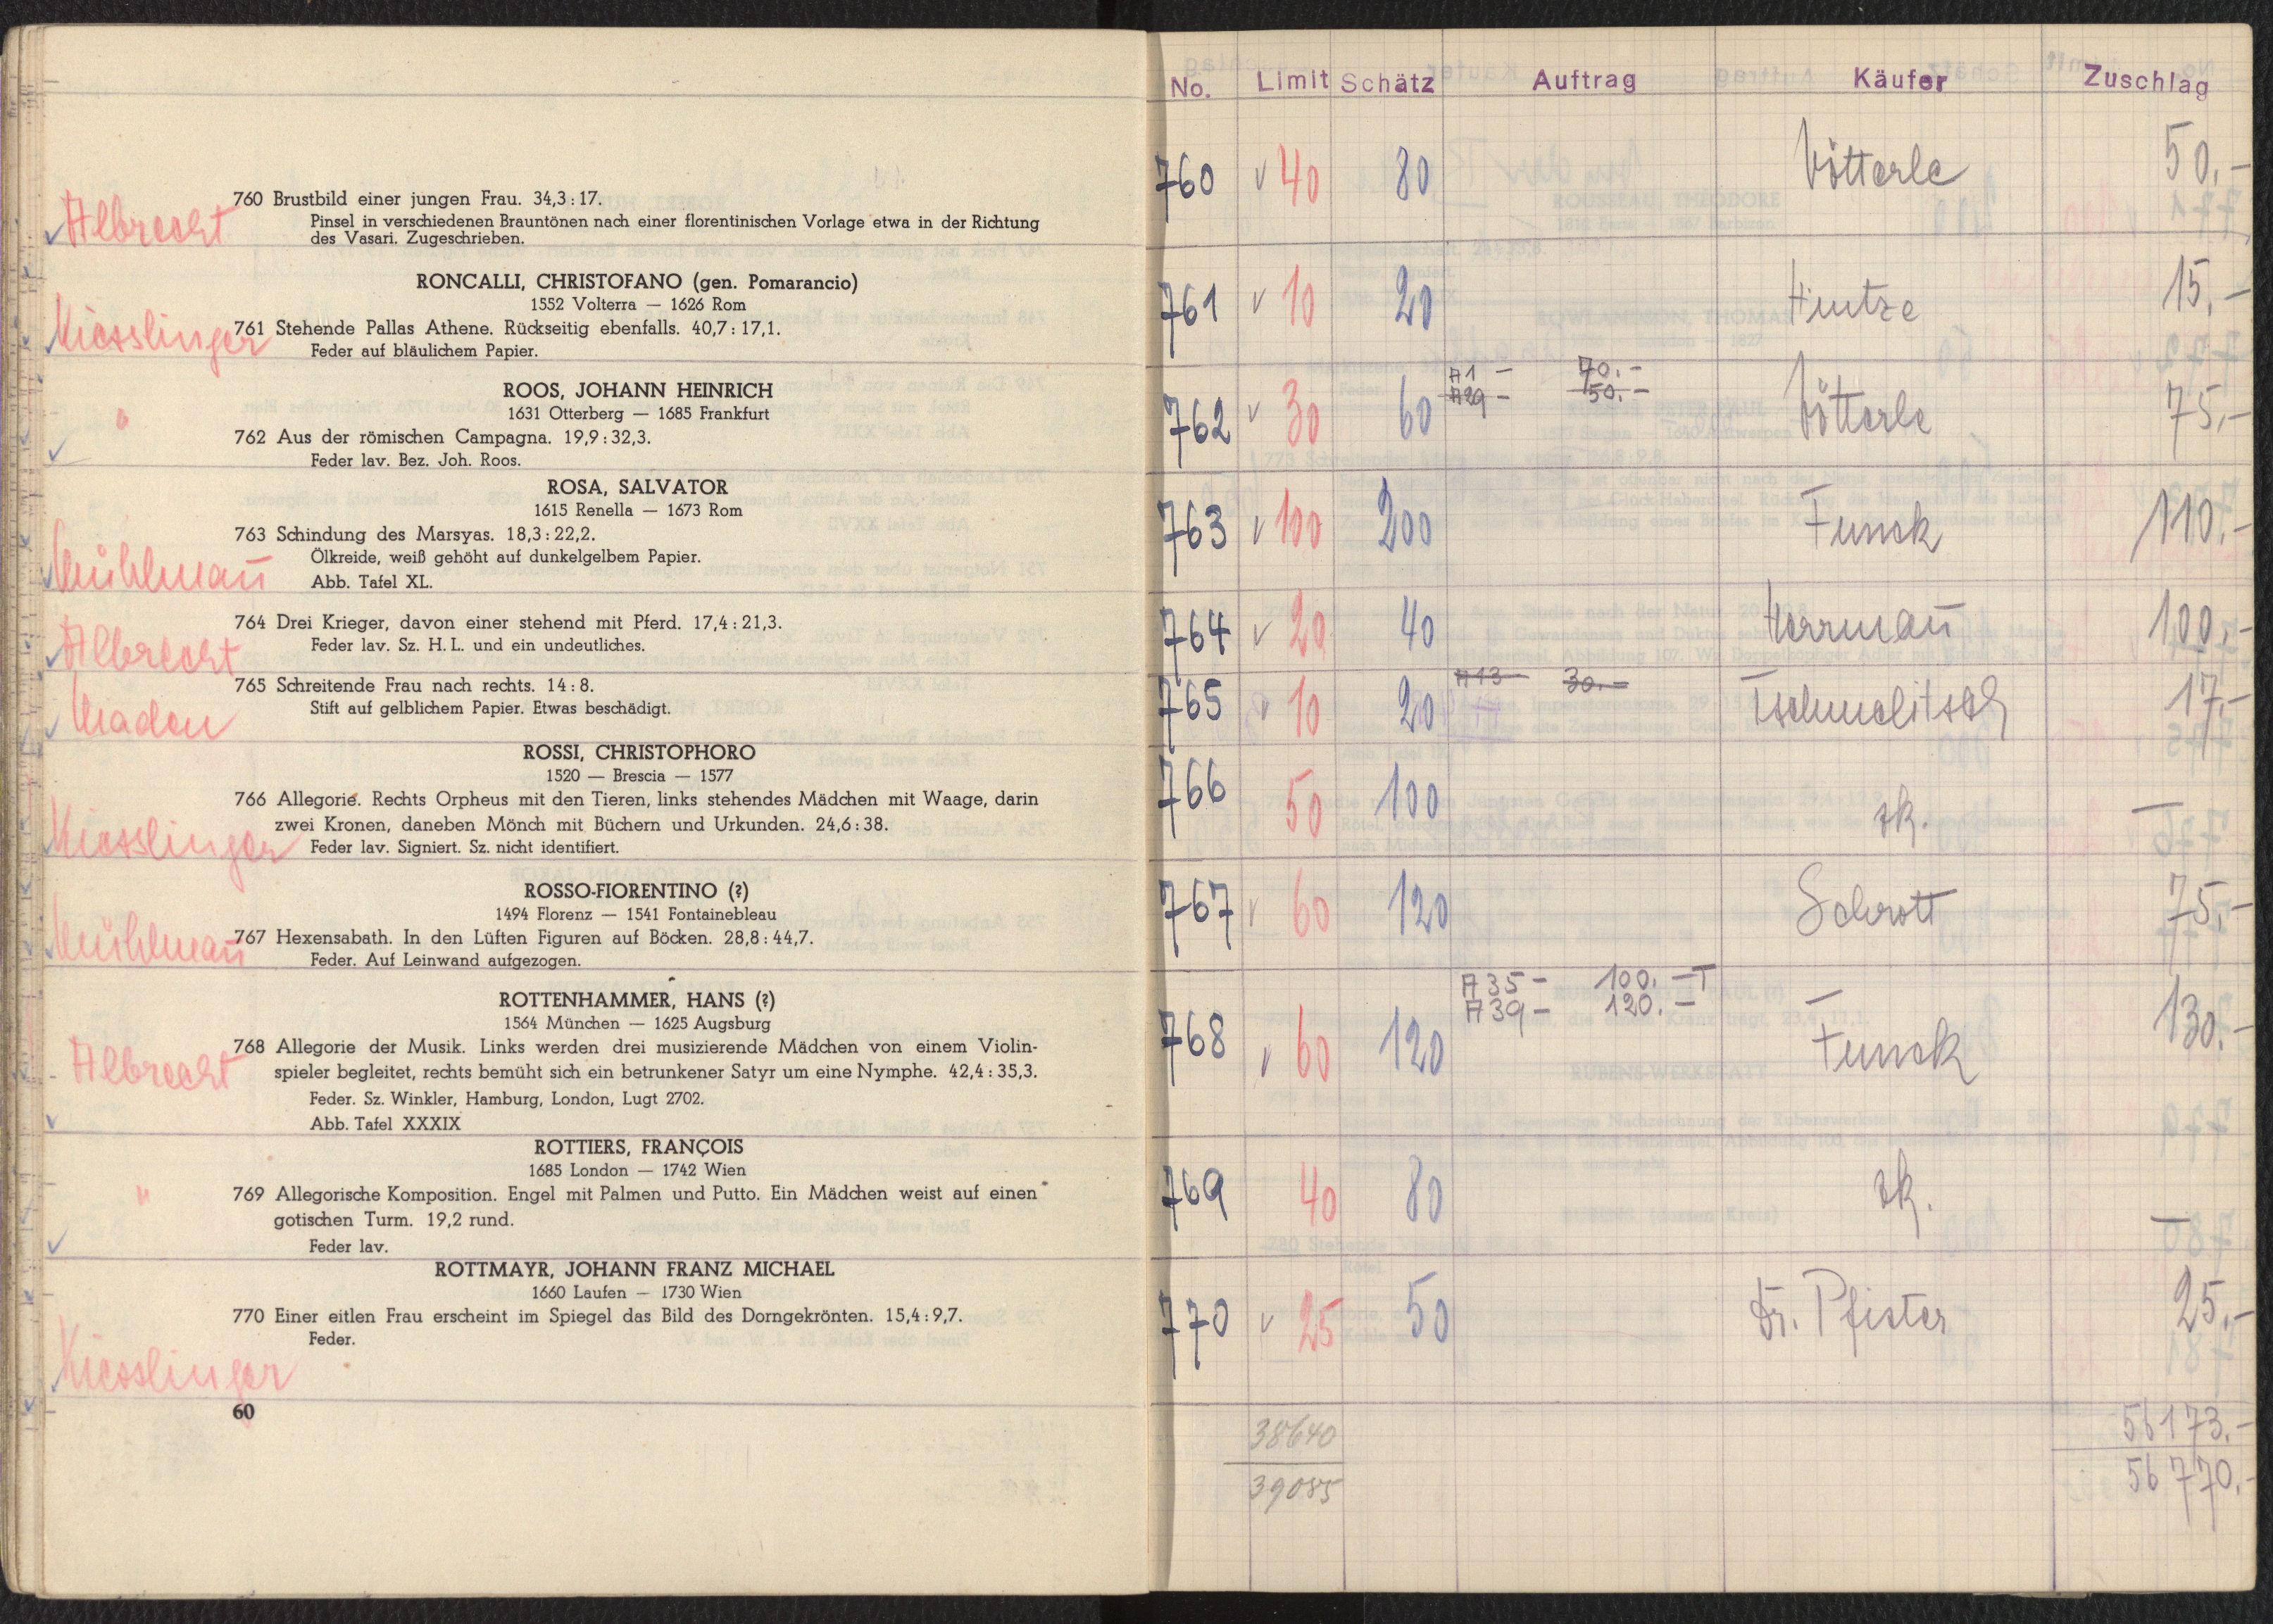 760 Brustbild einer jungen Frau. 34,3 : 17.
Pinsel in verschiedenen Brauntönen nach einer florentinischen Vorlage etwa in der Richtung
des Vasari. Zugeschrieben.
Albrecht
RONCALLI, CHRISTOFANO (gen. Pomarancio)
1552 Volterra — 1626 Rom
Kiesslinger
761 Stehende Pallas Athene. Rückseitig ebenfalls. 40,7 : 17,1.
Feder auf bläulichem Papier.
ROOS, JOHANN HEINRICH
1631 Otterberg — 1685 Frankfurt
"
762 Aus der römischen Campagna. 19,9 : 32,3.
Feder lav. Bez. Joh. Roos.
ROSA, SALVATOR
1615 Renella — 1673 Rom
763 Schindung des Marsyas. 18,3 : 22,2.
Ölkreide, weiß gehöht auf dunkelgelbem Papier.
Mühlmañ
Abb. Tafel XL.
764 Drei Krieger, davon einer stehend mit Pferd. 17,4 : 21,3.
Feder lav. Sz. H. L. und ein undeutliches.
Albrecht
765 Schreitende Frau nach rechts. 14 : 8.
Stift auf gelblichem Papier. Etwas beschädigt.
ROSSI, CHRISTOPHORO
1520 — Brescia — 1577
766 Allegorie. Rechts Orpheus mit den Tieren, links stehendes Mädchen mit Waage, darin
zwei Kronen, daneben Mönch mit Büchern und Urkunden. 24,6 : 38.
Kiesslinger
Feder lav. Signiert. Sz. nicht identifiert.
ROSSO-FIORENTINO (?)
1494 Florenz — 1541 Fontainebleau
Mühlmañ
767 Hexensabath. In den Lüften Figuren auf Böcken. 28,8 : 44,7.
Feder. Auf Leinwand aufgezogen.
ROTTENHAMMER, HANS (?)
1564 München — 1625 Augsburg
768 Allegorie der Musik. Links werden drei musizierende Mädchen von einem Violin-
spieler begleitet, rechts bemüht sich ein betrunkener Satyr um eine Nymphe. 42,4 : 35,3.
Albrecht
Feder. Sz. Winkler, Hamburg, London, Lugt 2702.
Abb. Tafel XXXIX
ROTTIERS, FRANÇOIS
1685 London — 1742 Wien
"
769 Allegorische Komposition. Engel mit Palmen und Putto. Ein Mädchen weist auf einen
gotischen Turm. 19,2 rund.
Feder lav.
ROTTMAYR, JOHANN FRANZ MICHAEL
1660 Laufen — 1730 Wien
770 Einer eitlen Frau erscheint im Spiegel das Bild des Dorngekrönten. 15,4 : 9,7.
Feder.
Kiesslinger
60
No. Limit Schätz Auftrag Käufer Zuschlag
760 √ 40 80 Vötterle 50.-
761 √ 10 20 Hintze 15.-
A1 - 70.-
A29 - 50.-
762 √ 30 60 Vötterle 75.-
763 √ 100 200 Funck 110.-
764 √ 20 40 Herrmañ 100.-
A13 30.-
765 √ 10 20 Tschmelitsch 17.-
766 50 100 zk. —
767 √ 60 120 Schrott 75.-
A35 - 100.- T
A39 - 120.-
768 √ 60 120 Funck 130.-
769 40 80 zk. —
770 √ 25 50 Dr. Pfister 25.-
38640 56173.-
39085 56770.-